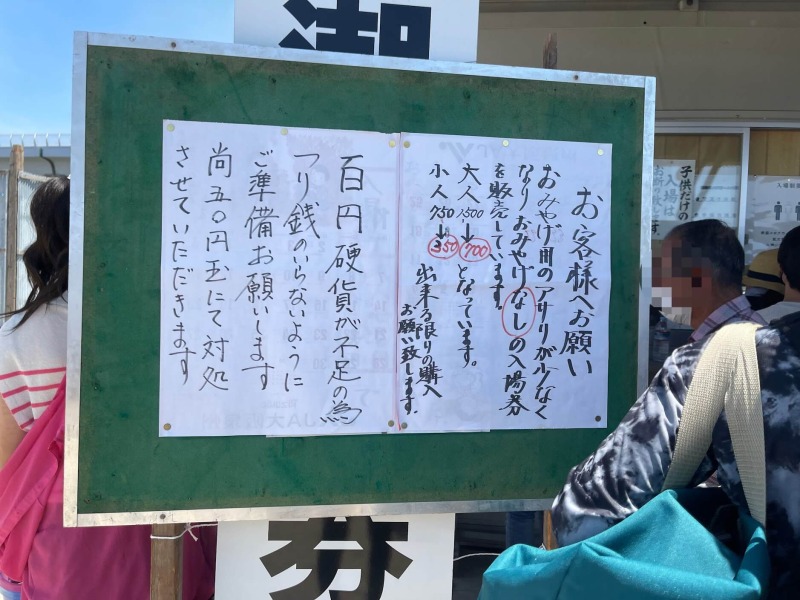 お客様へお願い
おみやげ用のアサリが少なく
なりおみやげなしの入場券
を販売しています。
大人1500→700となっています。
小人750→350 出来る限りの購入
お願い致します。
百円硬貨が不足の為
つり銭のいらないように
ご準備お願いします
尚五〇円玉にて対処
させていただきます
潮
券
子供だけの
入場は